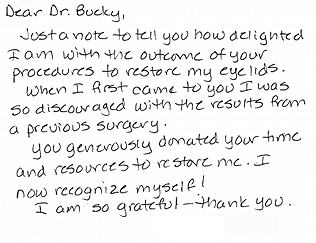 Dear Dr. Bucky,
Just a note to tell you how delighted
I am with the outcome of your
procedures to restore my eyelids.
When I first came to you I was
so discouraged with the results from
a previous surgery.
You generously donated your time
and resources to restore me. I
now recognize myself!
I am so grateful – thank you.